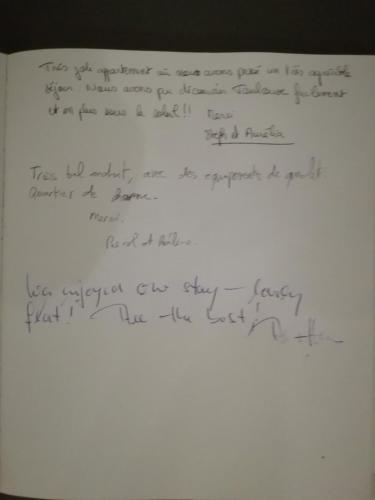 Très joli appartement où nous avons passé un très agréable
séjour. Nous avons pu découvrir Toulouse facilement
et en plus sous le soleil!!
Merci
Steph et Amélie
Très bel endroit, avec des équipements de qualité.
Quartier de charme.
Merci.
et Hélène.
We enjoyed our stay – lovely
flat! the best!